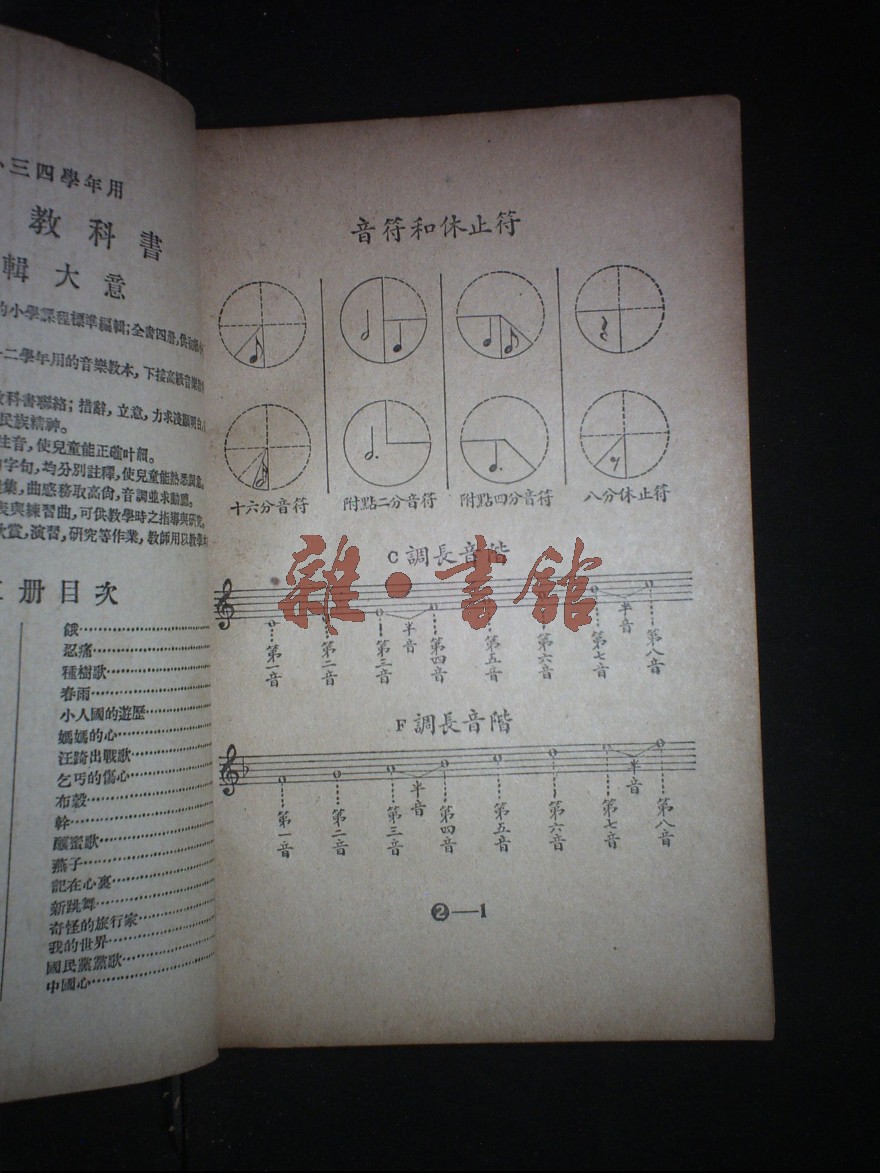 小三四學年用
教科書
輯大意
的小學課程標準編輯;全書四册,供
二學年用的音樂教本,下接高級音樂
教科書聯絡;措辭,立意,力求淺顯明白,
民族精神。
注音,使兒童能正確叶韻。
字句,均分別註釋,使兒童能熟悉
集,曲感務取高尙,音調並求動聽。
表與練習曲,可供敎學時之指導與研究。
欣賞,演習,研究等作業,敎師用以敎學
册目次
餓
忍痛
種樹歌
春雨
小人國的遊歷
媽媽的心
汪踦出戰歌
乞丐的傷心
布穀
幹
釀蜜歌
燕子
記在心裏
新跳舞
奇怪的旅行家
我的世界
國民黨黨歌
中國心
音符和休止符
十六分音符 附點二分音符 附點四分音符 八分休止符
C調長音階
第一音 第二音 第三音 半音 第四音 第五音 第六音 第七音 半音 第八音
F調長音階
第一音 第二音 第三音 半音 第四音 第五音 第六音 第七音 半音 第八音
❷—1
雜·書館